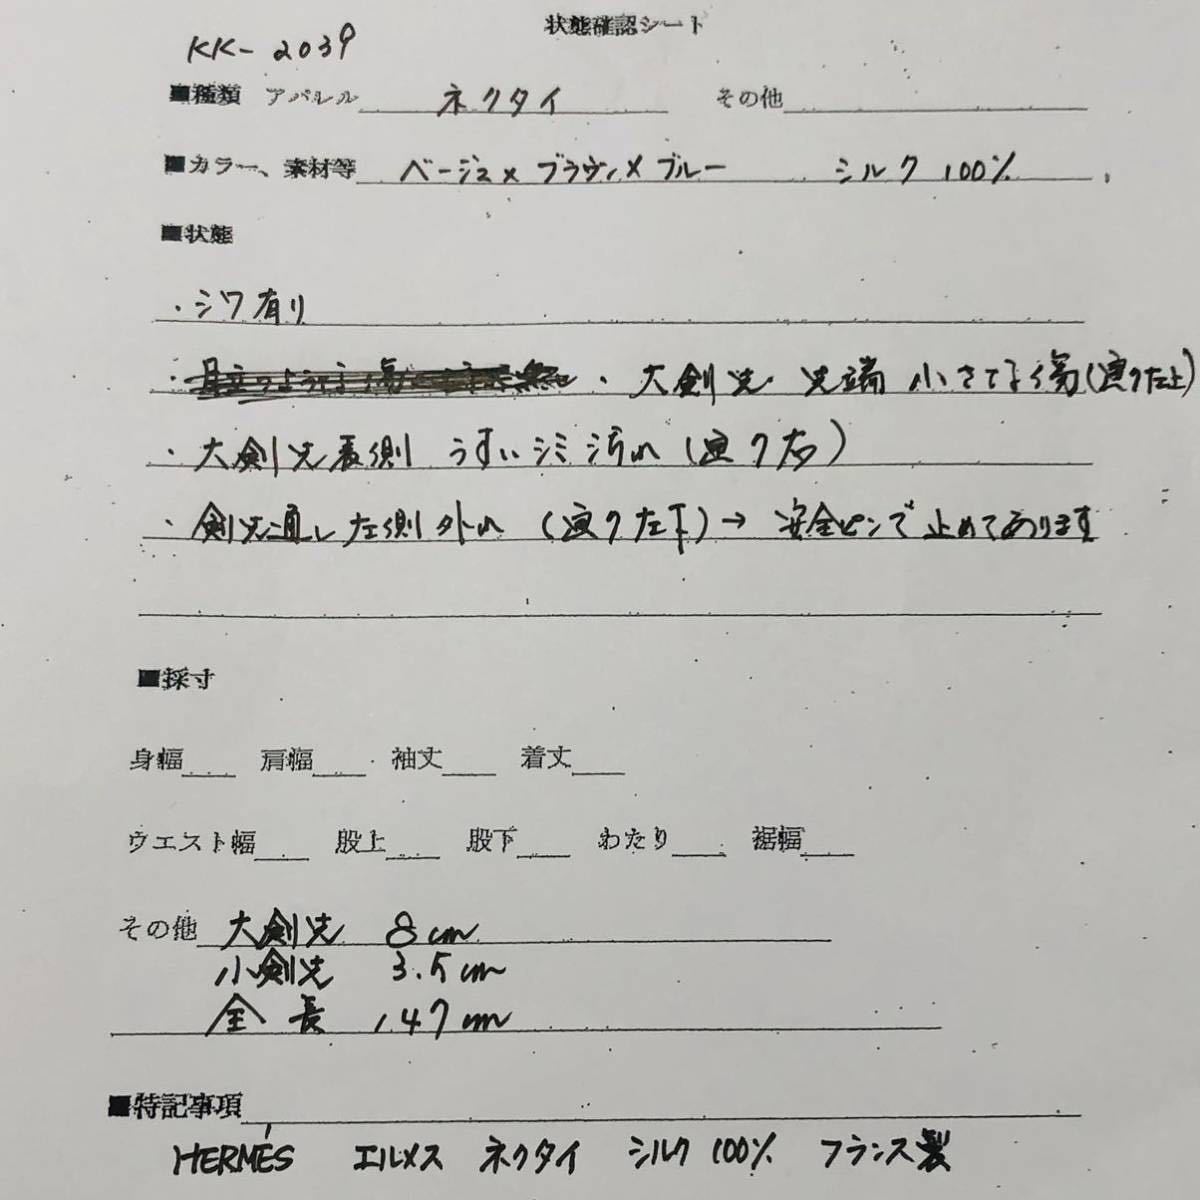 状態確認シート
KK-2039
■種類 アパレル ネクタイ その他
■カラー、素材等 ベージュ×ブラウン×ブルー シルク 100%
■状態
・シワ有り
・大剣先 先端 小さな傷(画像左上)
・大剣先表側 うすいシミ汚れ(画像右)
・剣先通し左側外れ (画像左下)→ 安全ピンで止めてあります
■採寸
身幅 肩幅 袖丈 着丈
ウエスト幅 股上 股下 わたり 裾幅
その他 大剣先 8cm
小剣先 3.5cm
全長 147cm
■特記事項
HERMÉS エルメス ネクタイ シルク100% フランス製